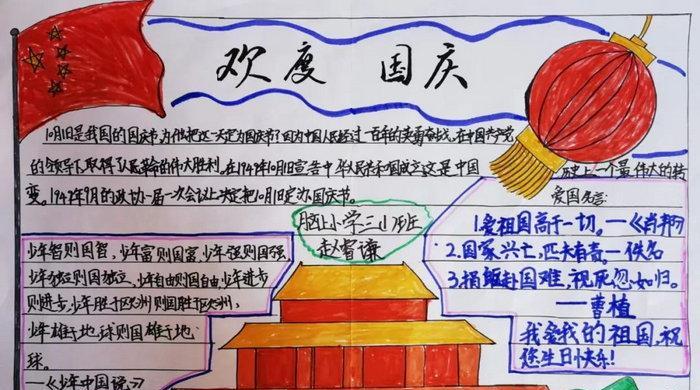 欢度 国庆
10月1日是我国的国庆节,为什么把这一天定为国庆节?因为中国人民经过一百年的英勇奋战,在中国共产党
的领导下,取得了人民革命的伟大胜利。在1949年10月1日宣告中华人民共和国成立,这是中国历史上一个最伟大的转
变。1949年9月的政协一届一次会议上决定把10月1日定为国庆节。
小学三(1)班
赵睿谦
少年智则国智,少年富则国富,少年强则国强
少年独立则国独立,少年自由则国自由,少年进步
则国进步,少年胜于欧洲则国胜于欧洲,
少年雄于地球则国雄于地
球。
—《少年中国说》
爱国名言:
1.爱祖国高于一切。—《肖邦》
2.国家兴亡,匹夫有责。—佚名
3.捐躯赴国难,视死忽如归。
——曹植
我爱我的祖国,祝
您生日快乐!